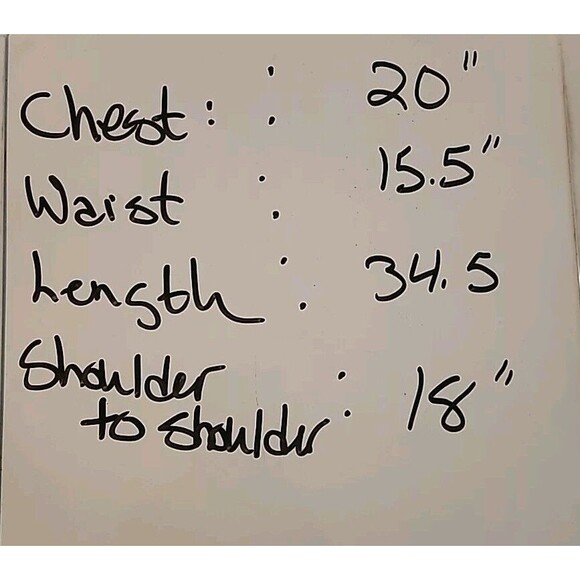 Chest : : 20"
Waist : 15.5"
Length : 34.5
Shoulder
to shoulder : 18"